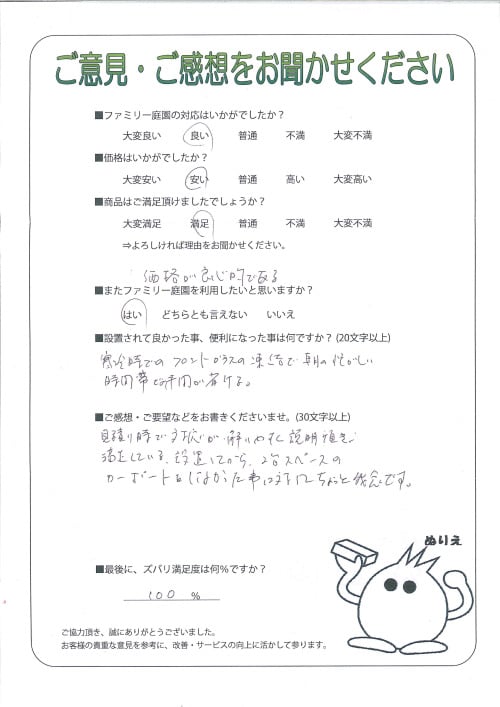 ご意見・ご感想をお聞かせください
■ファミリー庭園の対応はいかがでしたか？
大変良い 良い 普通 不満 大変不満
■価格はいかがでしたか？
大変安い 安い 普通 高い 大変高い
■商品はご満足頂けましたでしょうか？
大変満足 満足 普通 不満 大変不満
⇒よろしければ理由をお聞かせください。
価格が良心的である
■またファミリー庭園を利用したいと思いますか？
はい どちらとも言えない いいえ
■設置されて良かった事、便利になった事は何ですか？(20文字以上)
寒冷時でのフロントガラスの凍結で朝の忙がしい
時間帯に手間が省ける。
■ご感想・ご要望などをお書きくださいませ。(30文字以上)
見積り時で対応が解りやすく説明頂き
満足している。設置してから、2台スペースの
カーポートにしなかった事に対してちょっと残念です。
ぬりえ
■最後に、ズバリ満足度は何％ですか？
100 %
ご協力頂き、誠にありがとうございました。
お客様の貴重な意見を参考に、改善・サービスの向上に活かして参ります。